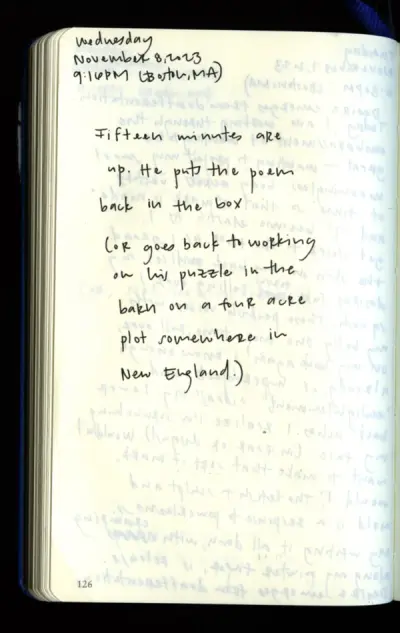 Wednesday
November 8, 2023
9:16PM (Boston, MA)
Fifteen minutes are
up. He puts the poem
back in the box
(or goes back to working
on his puzzle in the
barn on a four acre
plot somewhere in
New England.)
126